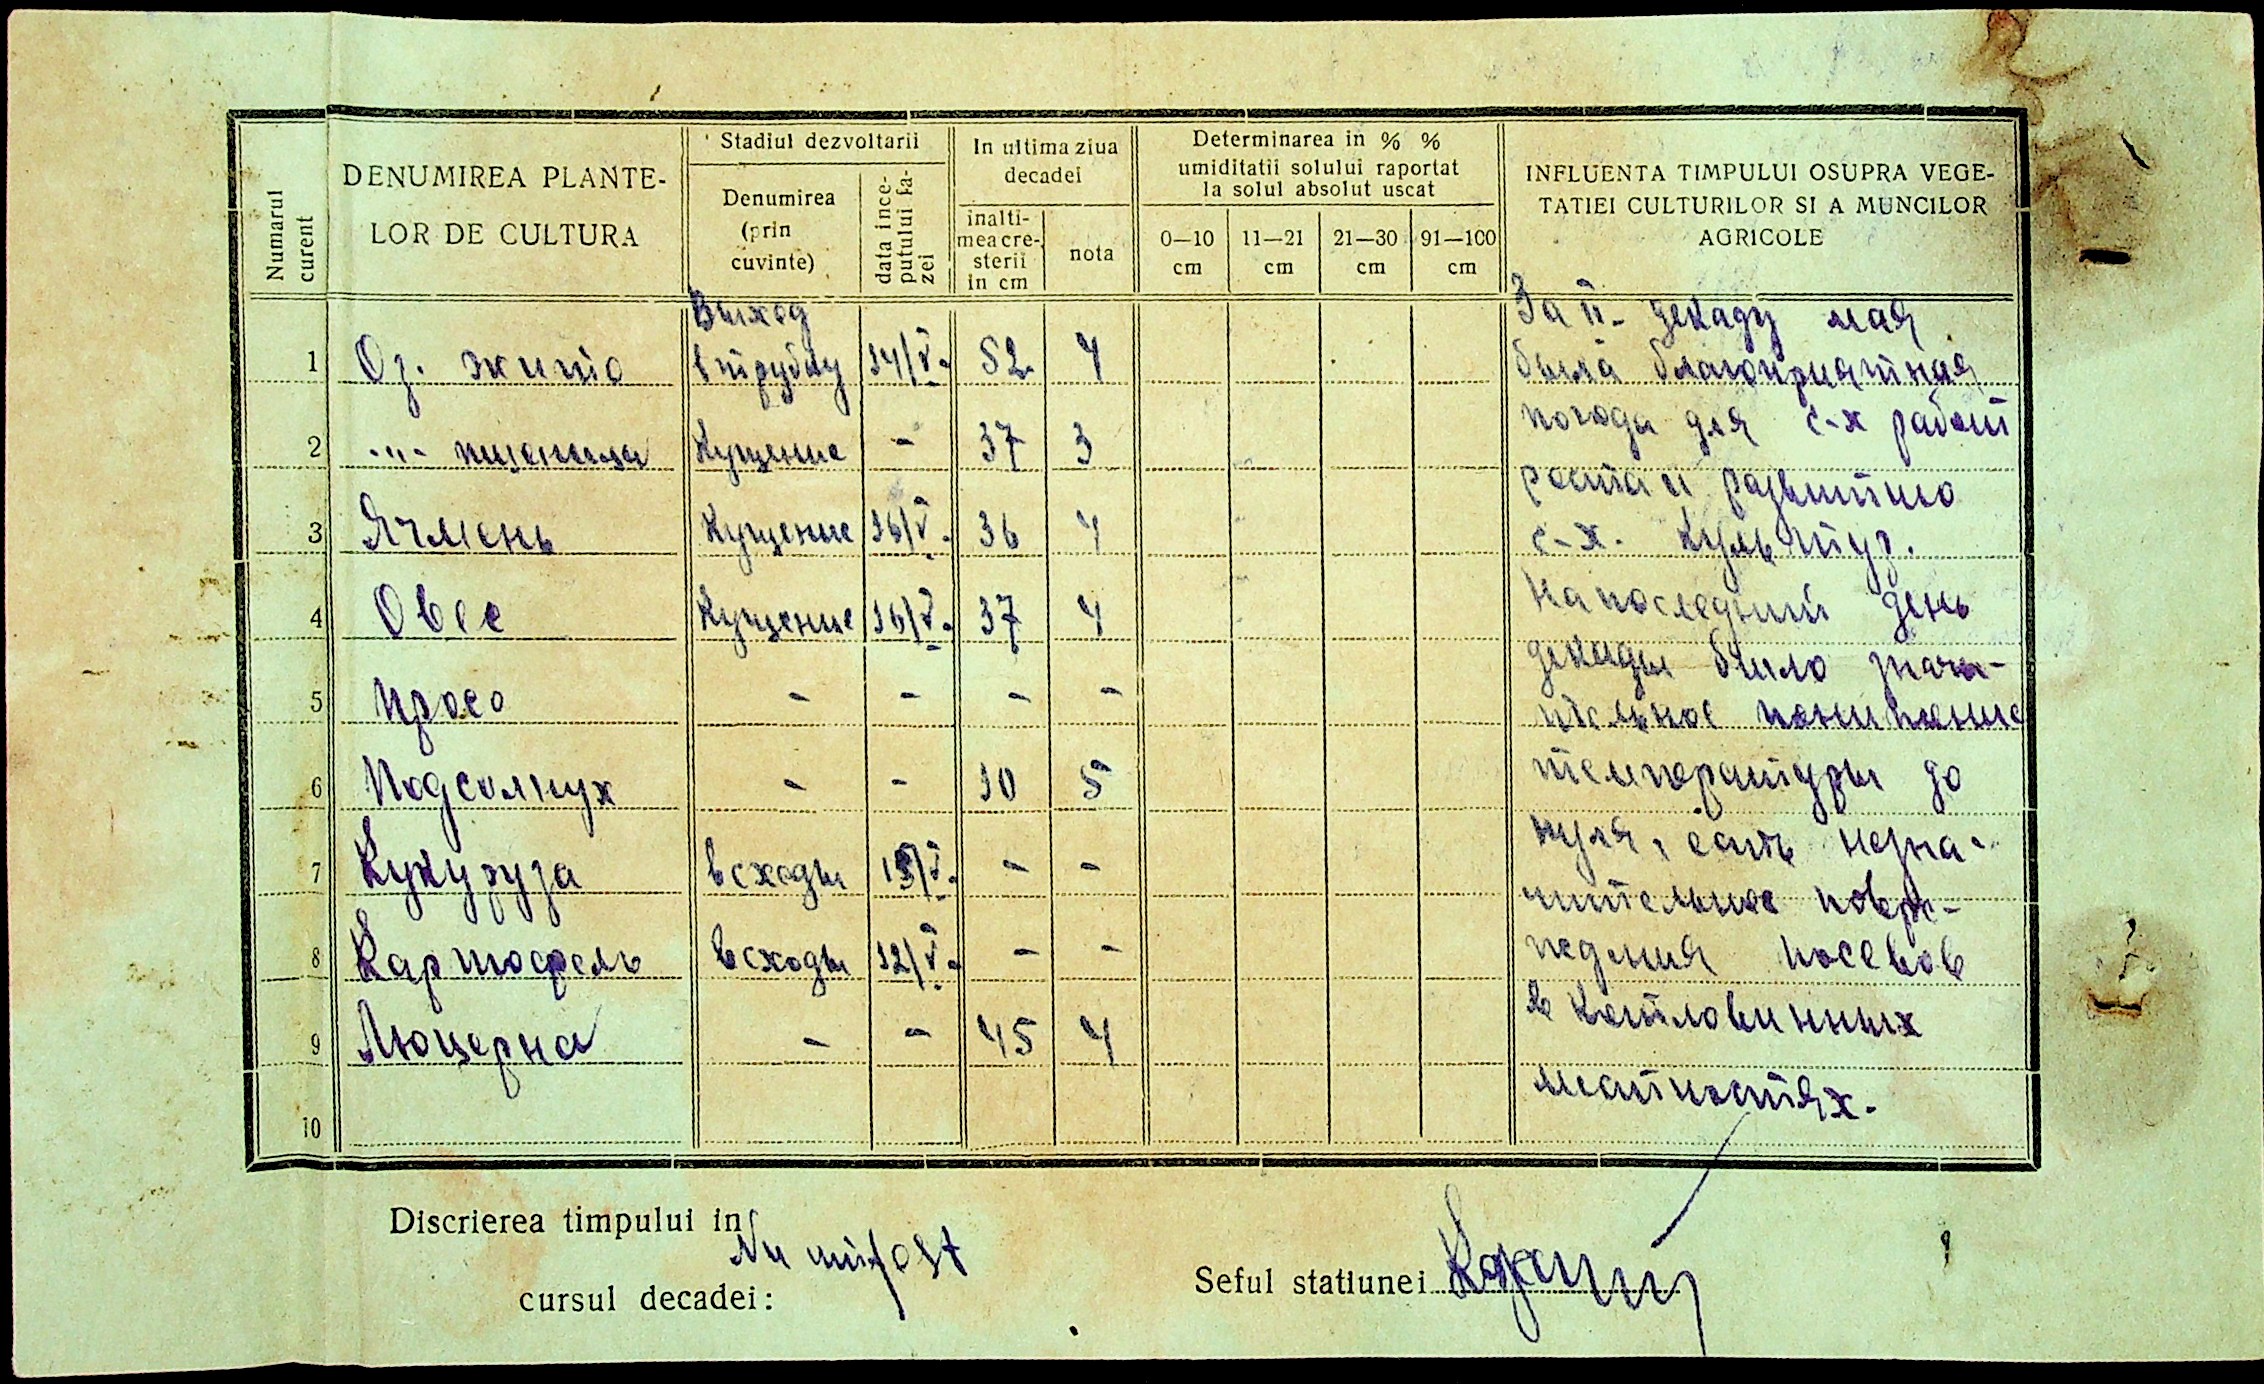 Numarul curent
DENUMIREA PLANTE-
LOR DE CULTURA
Stadiul dezvoltarii
Denumirea
(prin
cuvinte)
data ince-
putului fa-
zei
In ultima ziua
decadei
inalti-
mea cre-
sterii
in cm
nota
Determinarea in % %
umiditatii solului raportat
la solul absolut uscat
0—10 cm
11—21 cm
21—30 cm
91—100 cm
INFLUENTA TIMPULUI OSUPRA VEGE-
TATIEI CULTURILOR SI A MUNCILOR
AGRICOLE
1 Оз. жито Выход в трубку 14/V. 52 4
2 -"- пшеница Кущение - 37 3
3 Ячмень Кущение 16/V. 36 4
4 Овес Кущение 16/V. 37 4
5 Просо - - - -
6 Подсолнух - - 10 5
7 Кукуруза всходы /V. - -
8 Картофель всходы 12/V. - -
9 Люцерна - - 45 4
10
За II- декаду мая
была благоприятная
погода для с-х работ
роста и развитию
с-х. культур.
На последний день
декады было значи-
тельное понижение
температуры до
нуля, есть незна-
чительные повре-
ждения посевов
в котловинных
местностях.
Discrierea timpului in
cursul decadei:
Nu
Seful statiunei